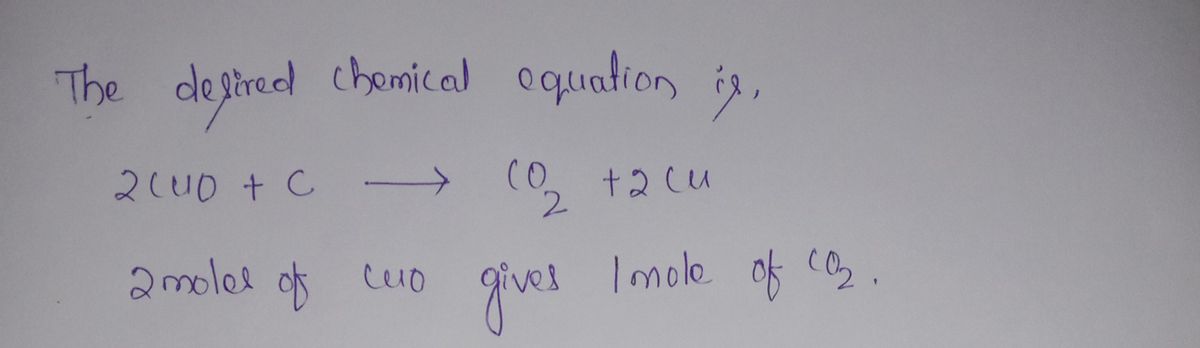 The desired chemical equation is,
2CuO + C → CO₂ + 2Cu
2moles of CuO gives 1mole of CO₂.